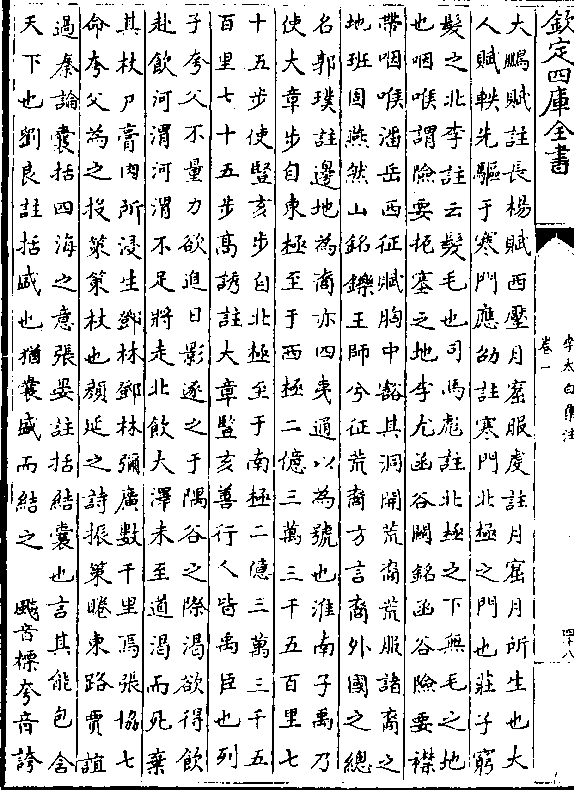 欽定四庫全書
李太白集注
卷一
四十八
大鵬賦註長楊賦西壓月窟服虔註月窟月所生也大
人賦軼先驅于寒門應劭註寒門北極之門也莊子窮
髮之北李註云髮毛也司馬彪註北極之下無毛之地
也咽喉謂險要扼塞之地李尤函谷關銘函谷險要襟
帶咽喉潘岳西征賦胸中豁其洞開荒裔荒服諸裔之
地班固燕然山銘鑠王師兮征荒裔方言裔外國之總
名郭璞註邊地為裔亦四夷通以為號也淮南子禹乃
使大章步自東極至于西極二億三萬三千五百里七
十五步使豎亥步自北極至于南極二億三萬三千五
百里七十五步高誘註大章豎亥善行人皆禹臣也列
子夸父不量力欲追日影逐之于隅谷之際渴欲得飲
赴飲河渭河渭不足將走北飲大澤未至道渴而死棄
其杖尸膏肉所浸生鄧林鄧林彌廣數千里焉張協七
命夸父為之投策策杖也顏延之詩振策睠東路賈誼
過秦論囊括四海之意張晏註括結囊也言其能包含
天下也劉良註括盛也猶囊盛而結之 飈音標夸音誇